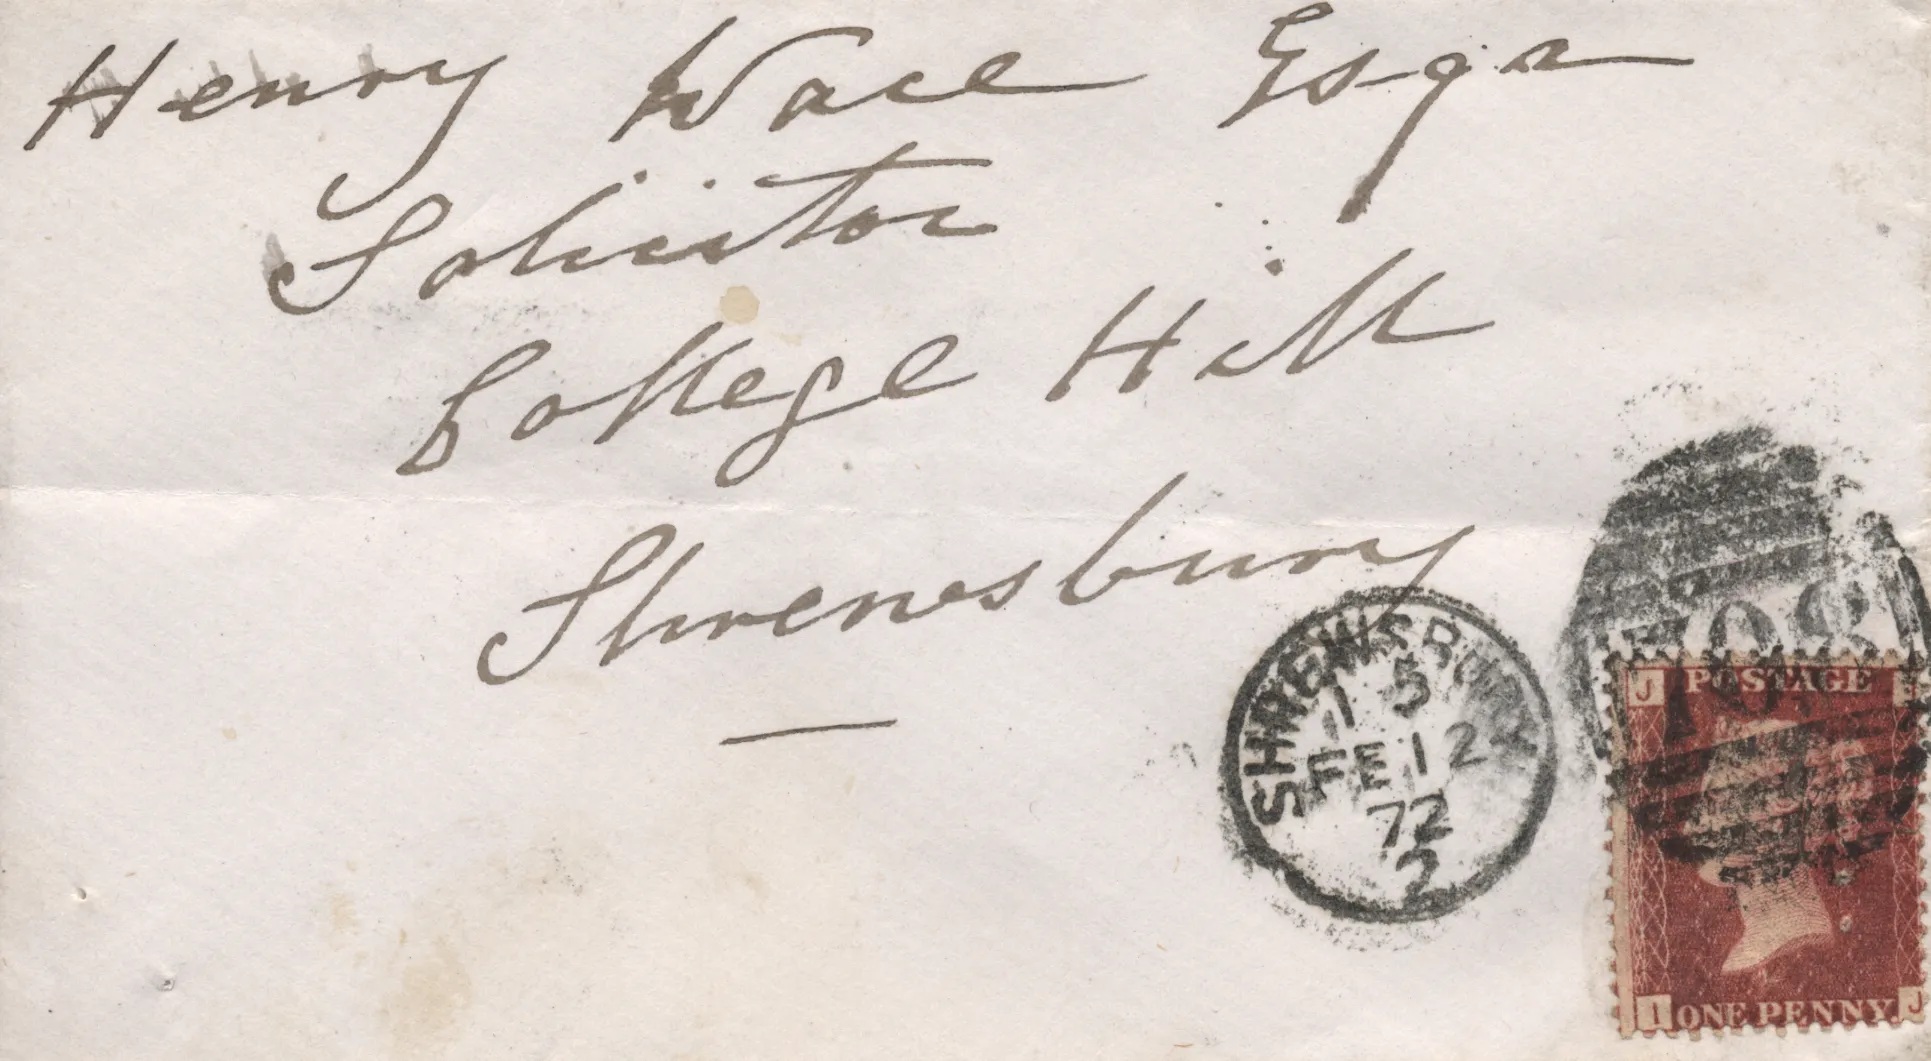 Henry Wace Esqr
Solicitor
College Hill
Shrewsbury
SHREWSBURY
1 5
FE 12
72
2
708
J
POSTAGE
I
ONE PENNY
J